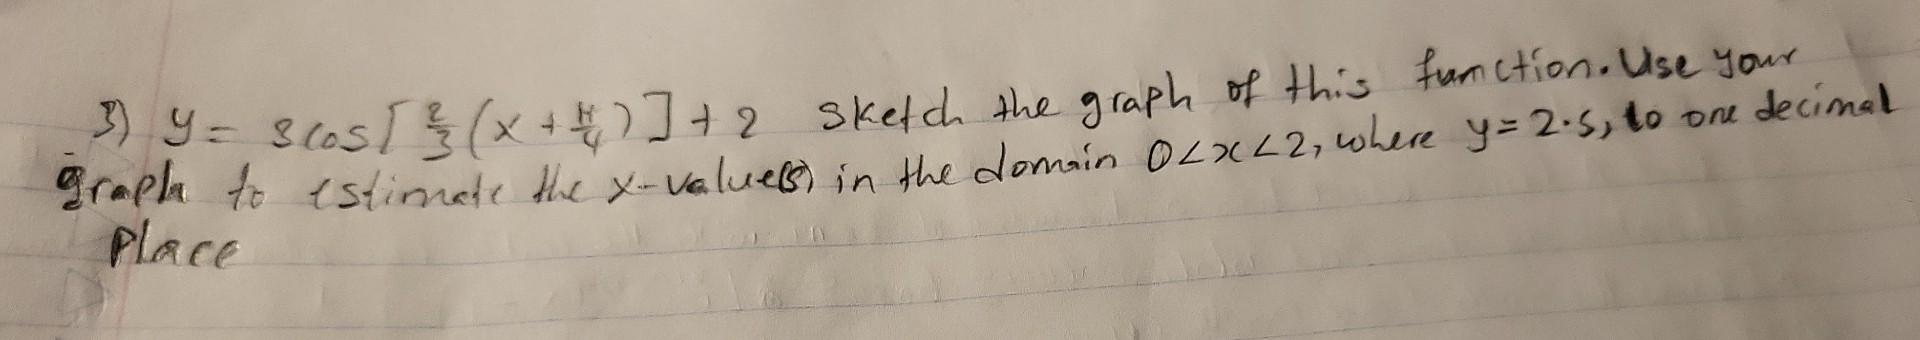 3) y = 3cos[⅔(x + π/4)] + 2 sketch the graph of this function. Use your
graph to estimate the x-value(s) in the domain 0<x<2, where y=2.5, to one decimal
place